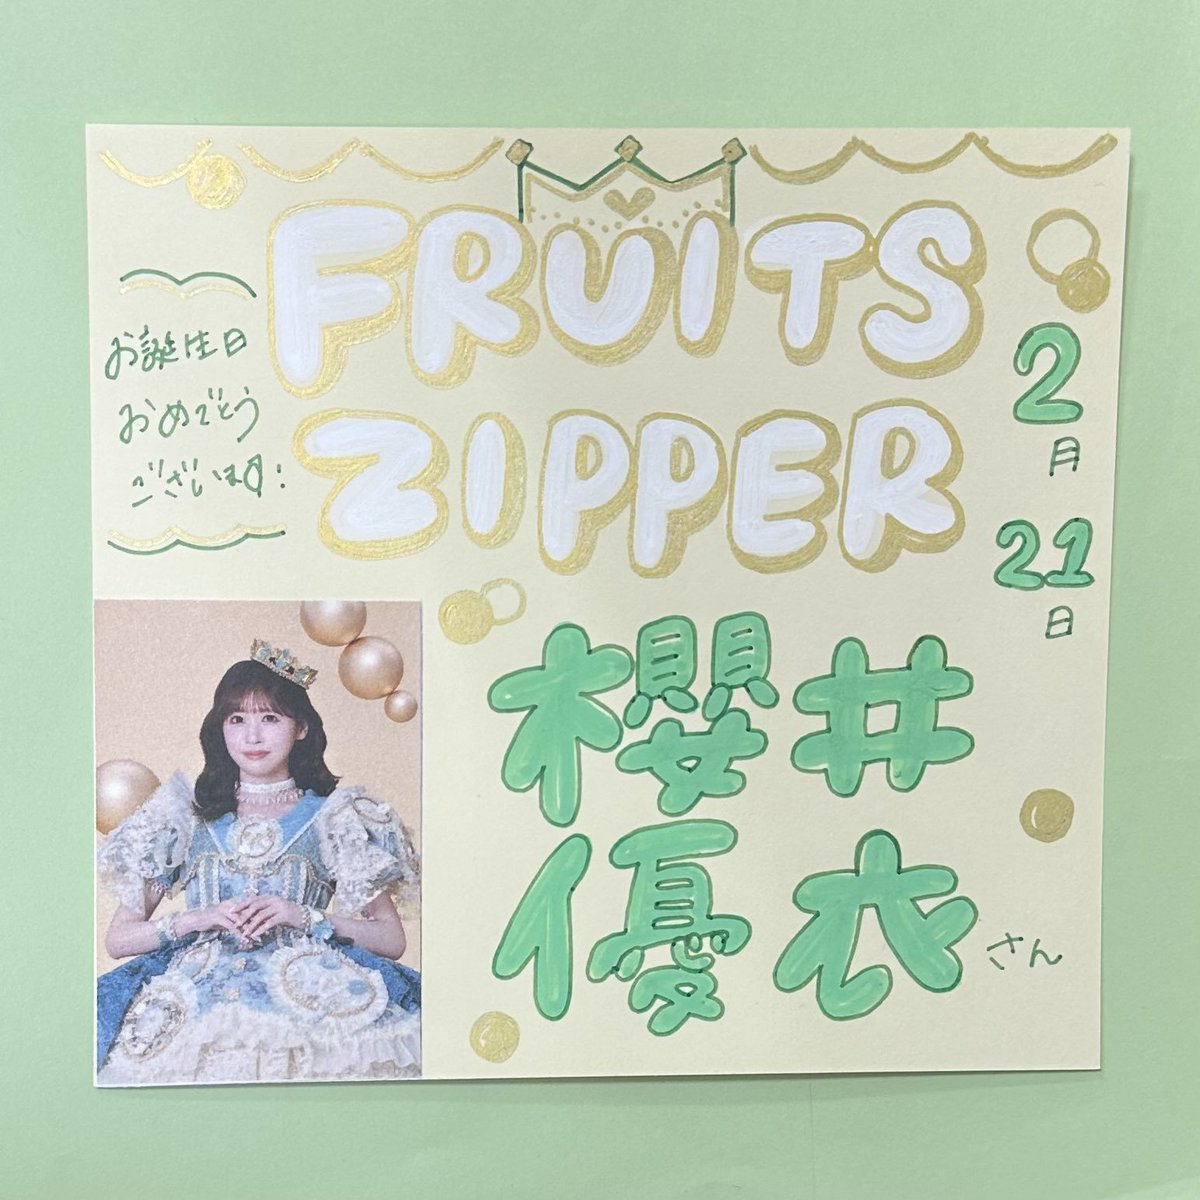 FRUITS
ZIPPER
お誕生日
おめでとう
ございます!
2
月
21
日
櫻井
優衣さん